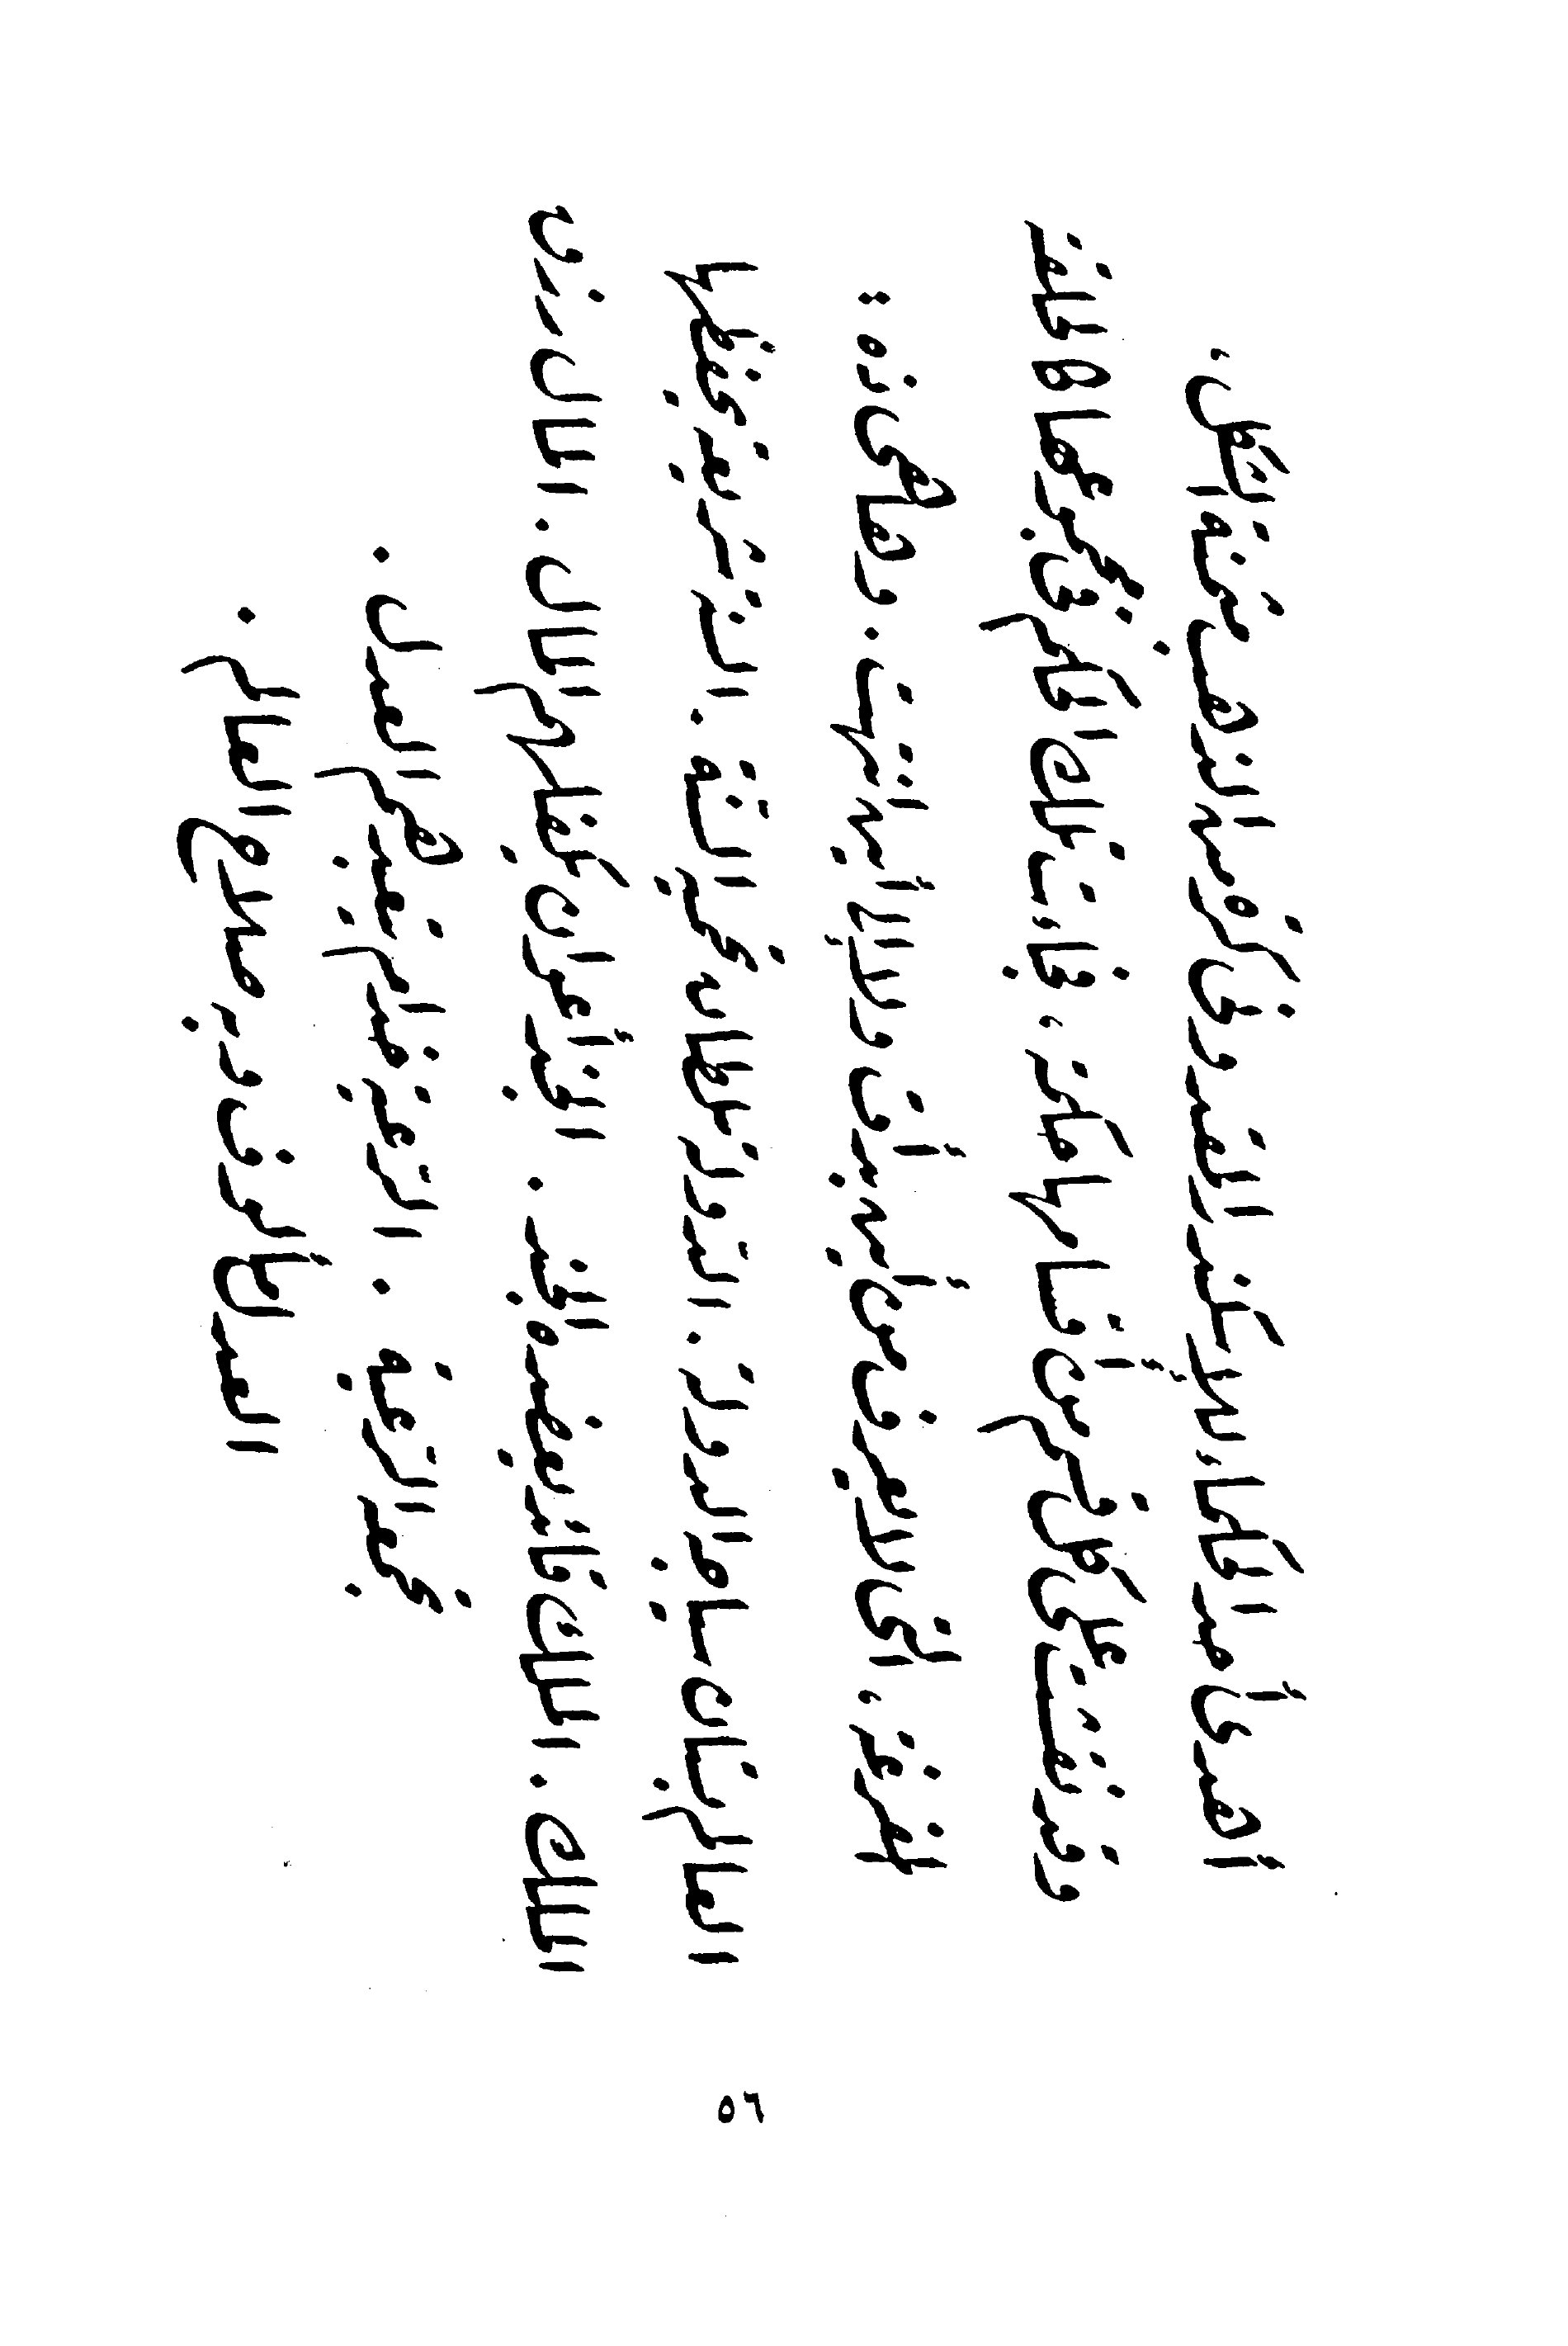 أهدى أحد الحكماء للإسكندر المقدونى كرة من الذهب مثمنة الشكل ،
وقد نقشت على كل قسم من أقسامها حكمة ، فجاءت تلك الحكم فى مجموعها كالحلقة
المفرغة ، التى لا يعرف من أين بدأت ولا إلى أين انتهت . وها هى ذه :
العالم بستان سياجه الدولة . الدولة سلطان تحييه السنة . السنة شريعة يحفظها
الملك . الملك قائد يعضده الجند . الجند أعوان يكفلهم المال . المال رزق
تجمعه الرعية . الرعية خدام يتعبدهم العدل .
العدل مألوف وبه صلاح العالم .
٥٦